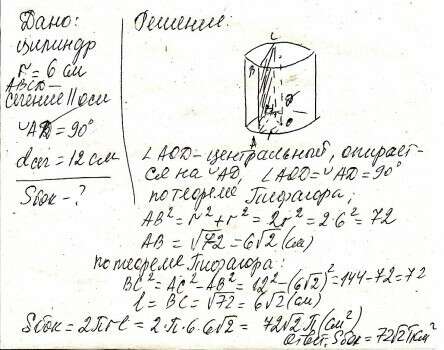 Дано:
цилиндр
r = 6 см
ABCD –
сечение || оси
◡AD = 90°
dсеч = 12 см
Sбок - ?
Решение:
C
B
A
O
∠AOD – центральный, опирает-
ся на ◡AD, ∠AOD = ◡AD = 90°
по теореме Пифагора;
AB² = r² + r² = 2r² = 2·6² = 72
AB = √72 = 6√2 (см)
по теореме Пифагора:
BC² = AC² - AB² = 12² - (6√2)² = 144 - 72 = 72
l = BC = √72 = 6√2 (см)
Sбок = 2πrl = 2·π·6·6√2 = 72√2 π (см²)
Ответ: Sбок = 72√2 π см²